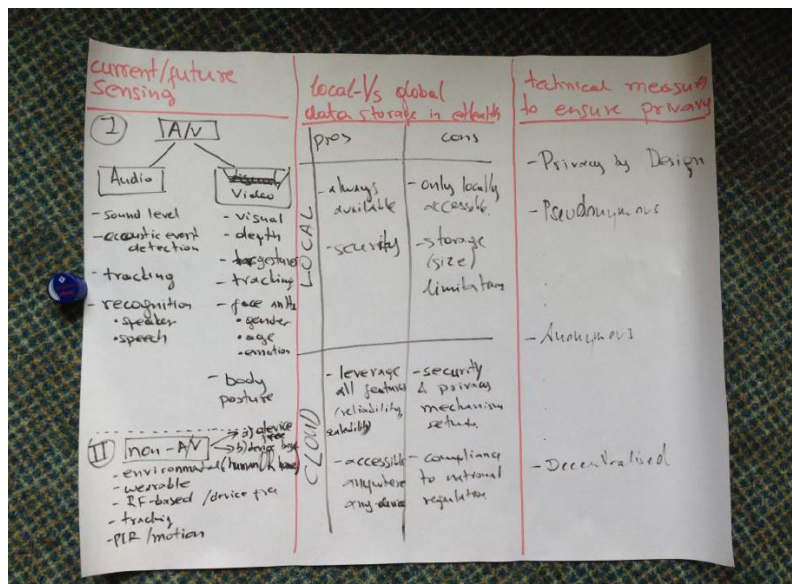 current/future
sensing
I
A/V
Audio
Video
- sound level
- acoustic event
detection
- tracking
- recognition
• speaker
• speech
- visual
- depth
- gesture
- tracking
- face
• gender
• age
• emotion
- body
posture
II
non-A/V
a) device
free
b) device
- environmental (human
- wearable
- RF-based / device free
- tracking
- PIR / motion
local-Vs global
data storage in eHealth
pros
cons
LOCAL
- always
available
- security
- only locally
accessible.
- storage
(size)
limitations
CLOUD
- leverage
all features
(reliability
scalability)
- accessible
anywhere
any device
- security
& privacy
mechanism
setup
- compliance
to national
regulation
technical measures
to ensure privacy
- Privacy by Design
- Pseudonymous
- Anonymous
- Decentralised